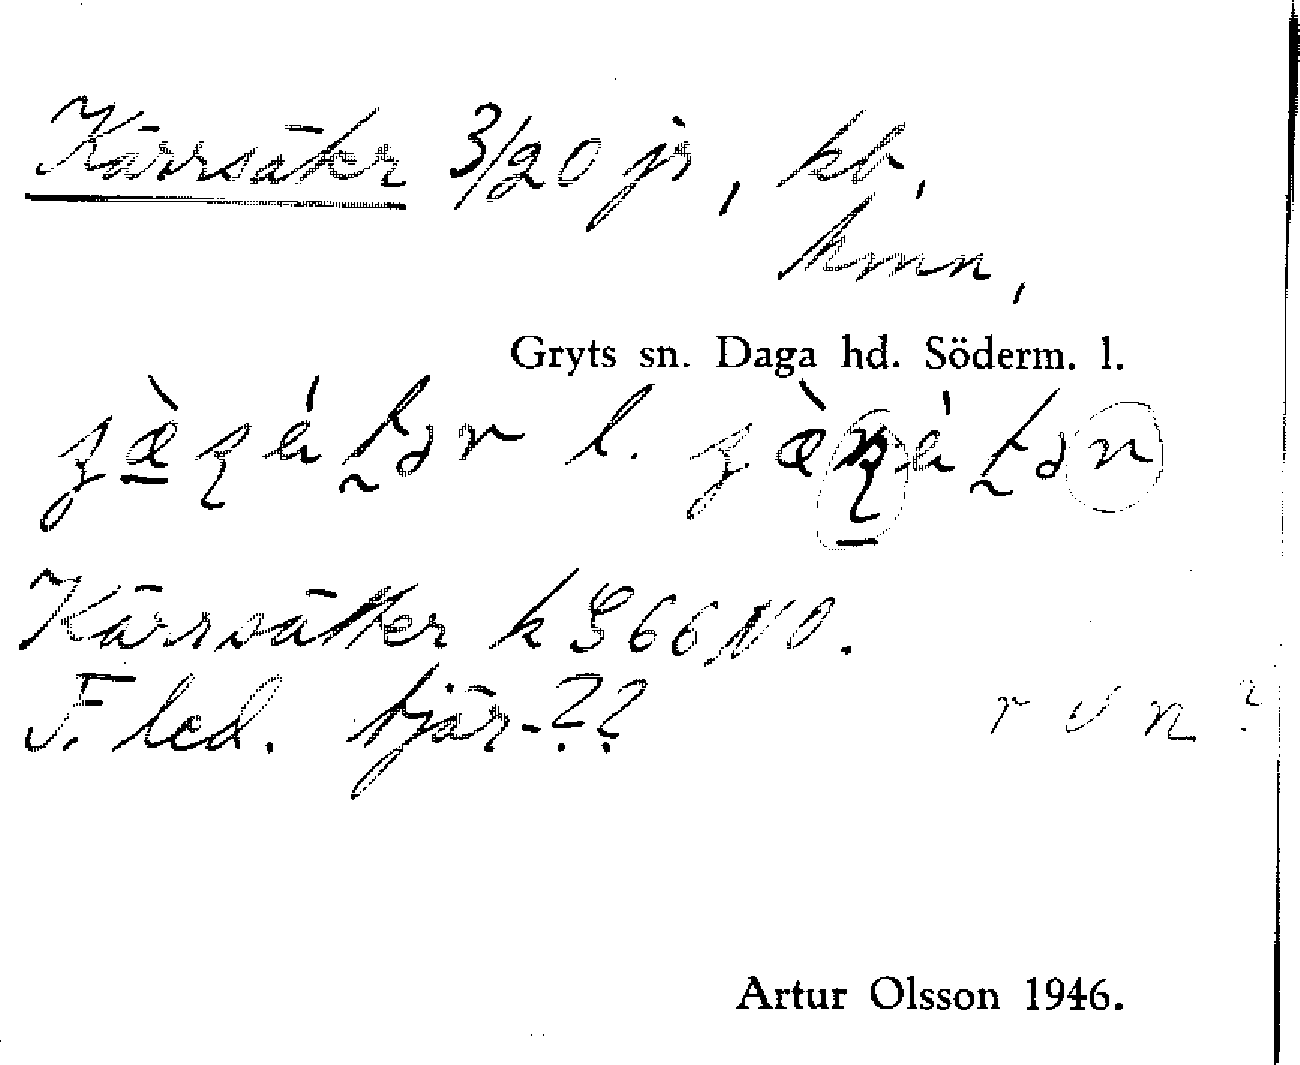 Kärrsäter 3/20 jr, kb,
kmn,
Gryts sn. Daga hd. Söderm. l.
l.
Kärrsäter k S 66 NO.
F. led. tjär-??
r el n?
Artur Olsson 1946.